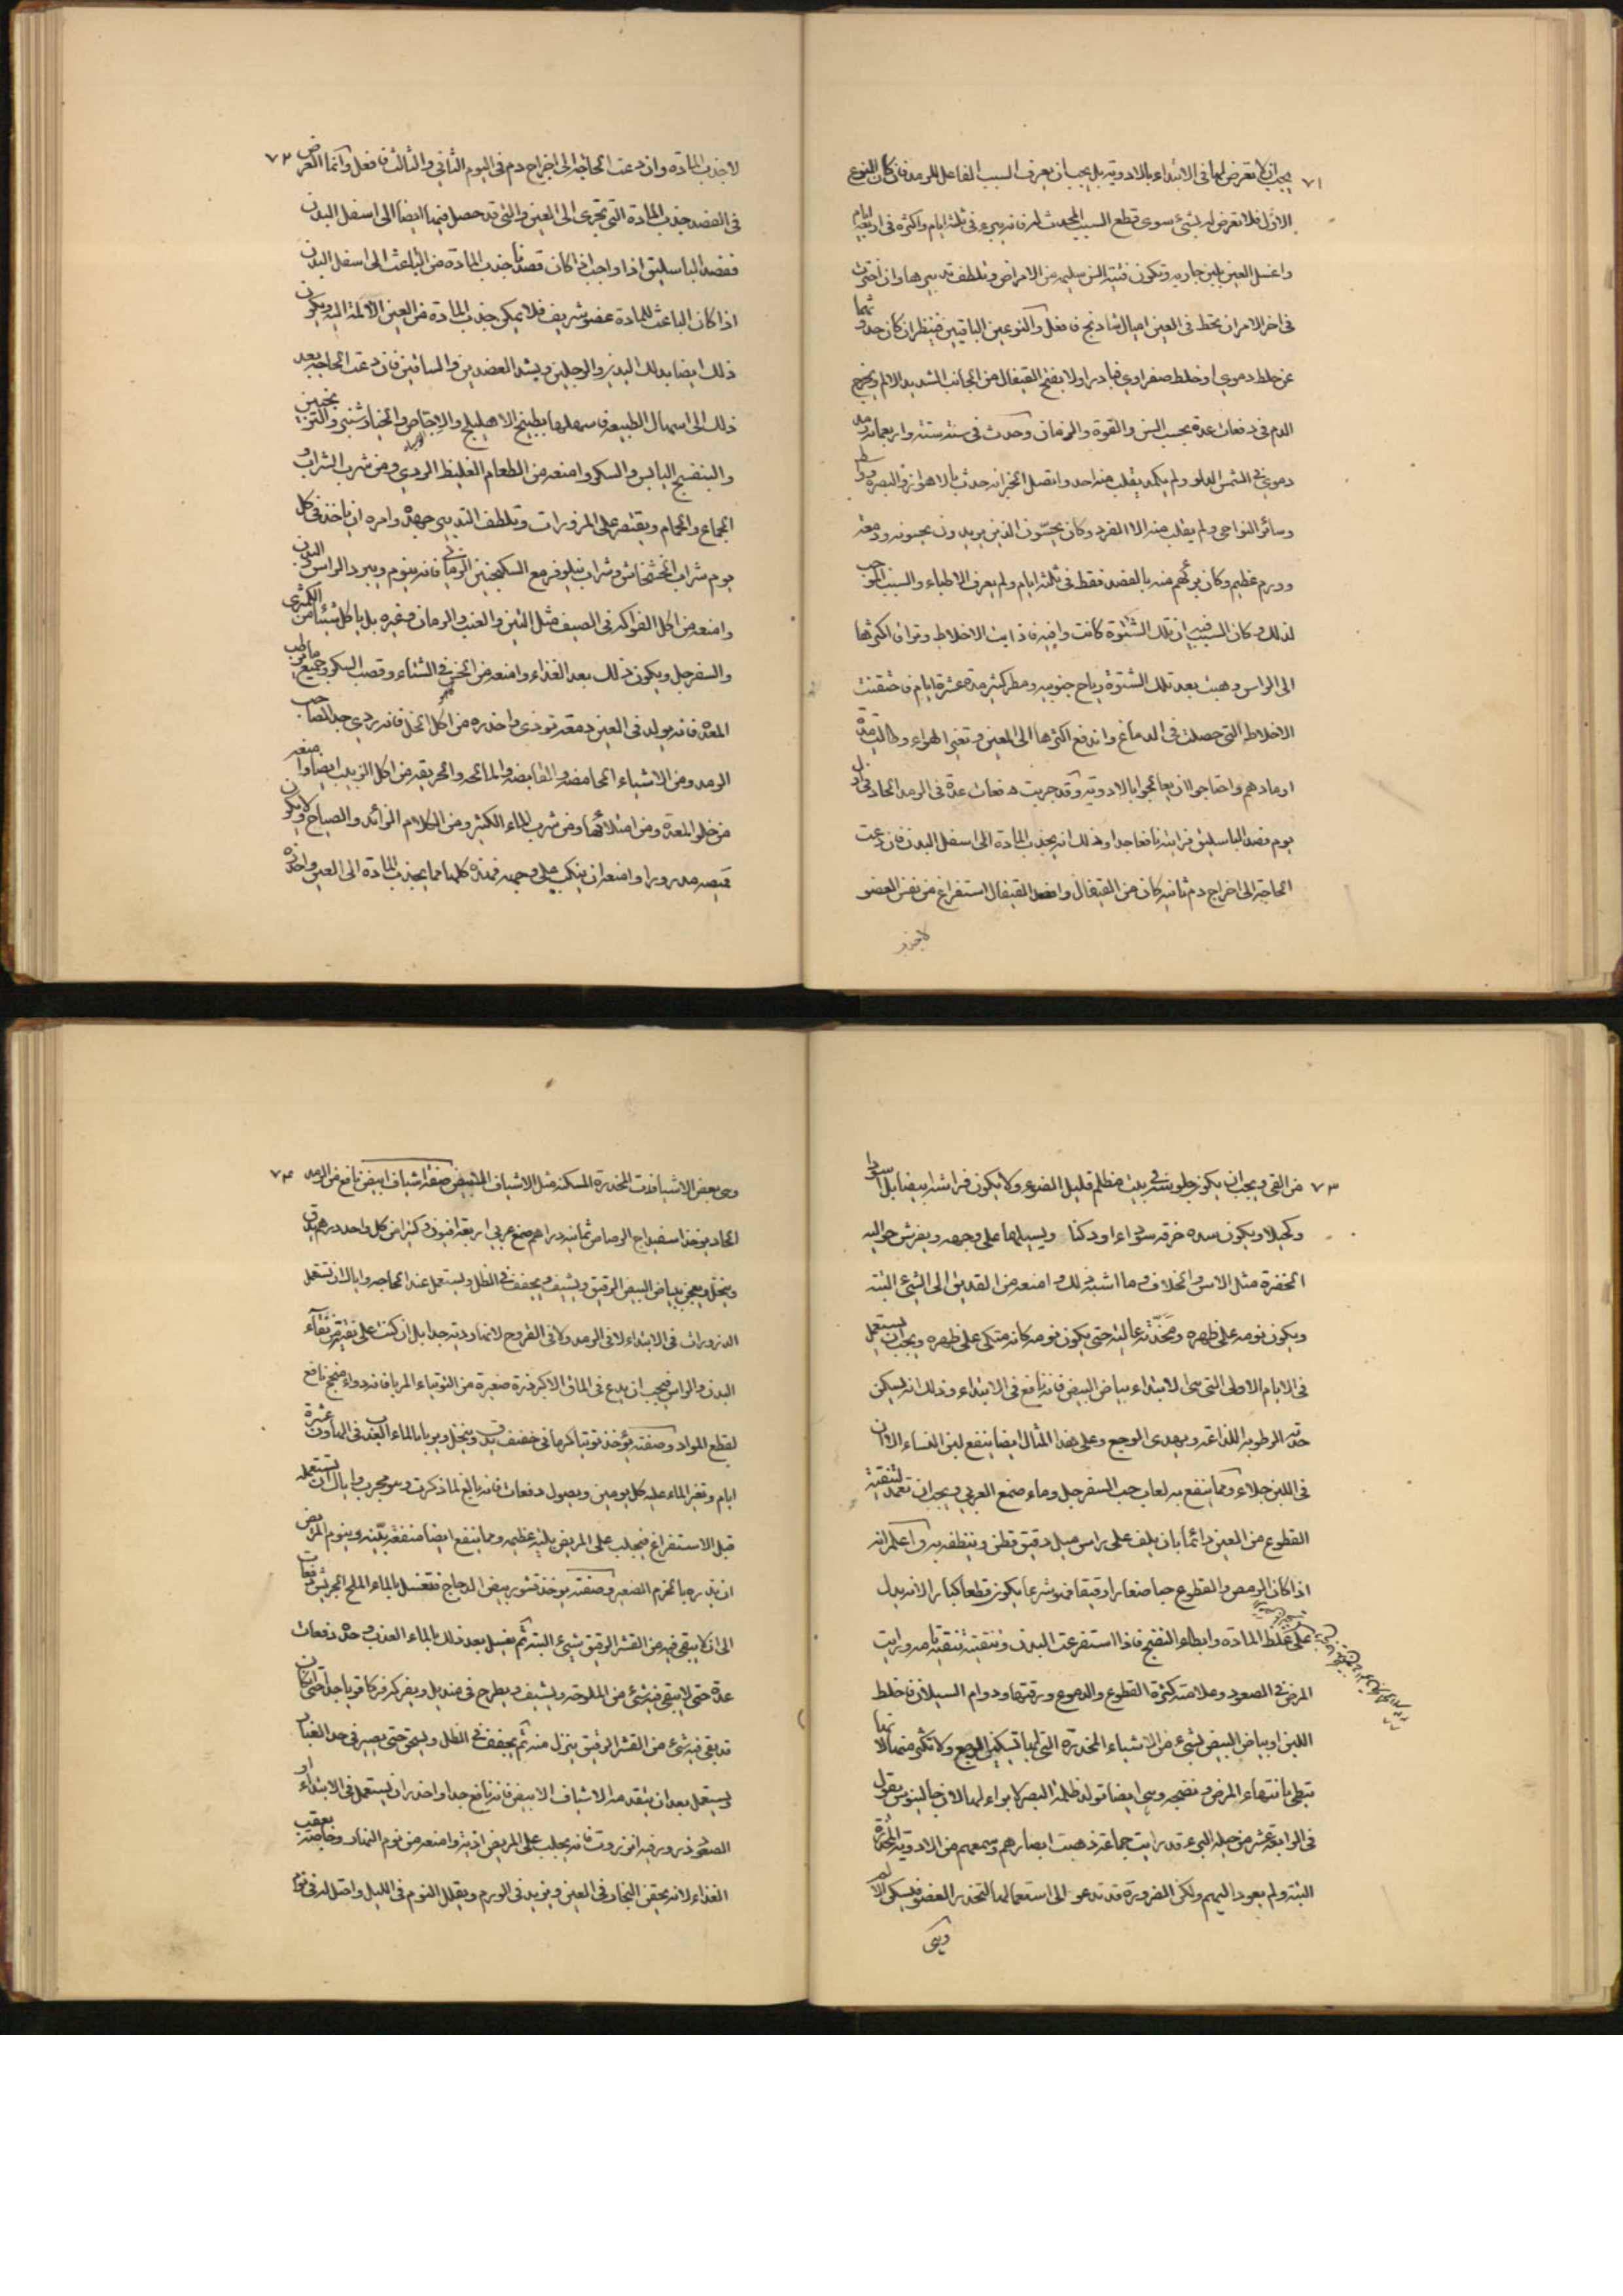 ٧١
يجب ان لا تعرض لها فى الابتداء بالادوية بل يجب ان يعرف السبب الفاعل للرمد فان كان النوع
الاول فلا تعرض له بشئ سوى قطع السبب المحدث له فانه يبرء فى ثلثة ايام واكثره فى اربعة ايام
واغسل العين بلبن جارية وتكون فتية السن سليمه من الامراض وتلطف تدبيرها وان احتجت
فى اخر الامر ان تحط فى العين اميال شادنج فافعل والنوعين الباقيين فينظر ان كان حدوثهما
عن خلط دموي او خلط صفراوي فبادر اولا بفتح القيفال من الجانب الشديد الالم ويخرج
الدم فى دفعات عدة بحسب السن والقوة والزمان وحدث فى سنة ستة واربعمائة رمد
دموي فى الشمس الدلو ولم يكد يفلت منه احد واتصل الخبر انه حدث بالاهواز والبصرة وواسط
وسائر النواحى ولم يفلت منه الا الفرد وكان يحسّون الذين يريدون يحسونه ودمعة
وورم عظيم وكان برئهم منه بالفصد فقط فى ثلثة ايام ولم يعرف الاطباء والسبب الموجب
لذلك وكان السبب فيه ان تلك الشتوة كانت دافية فذابت الاخلاط وتراق اكثرها
الى الراس وهبت بعد تلك الشتوة رياح جنوبيه ومطر كثير مدة عشرة ايام فاحتقنت
الاخلاط التى حصلت فى الدماغ واندفع اكثرها الى العين وتغير الهواء وطالت مدة
ارمادهم واحتاجوا ان يعالجوا بالادوية وقد جربت دفعات عدة فى الرمد الحاد فى اول
يوم فصد الباسليق فرايته نافعا جدا وذلك انه يجذب المادة الى اسفل البدن فان دعت
الحاجة الى اخراج دم ثانيه كان من القيفال وفصد القيفال استفراغ من نفس العضو
٧٢
لا جذب المادة وان دعت الحاجة الى اخراج دم فى اليوم الثانى والثالث فافعل وانما الغرض
فى الفصد جذب المادة التى تجرى الى العين والتى قد حصل فيها ايضا الى اسفل البدن
ففصد الباسليق اذا واجب اذ كان قصدنا جذب المادة من الباعث الى اسفل البدن
اذا كان الباعث للمادة عضو شريف فلا يمكن جذب المادة من العين الالمة اليه ويكون
ذلك ايضا بدلك اليدين والرجلين وبشد العضدين والساقين فان دعت الحاجة بعد
ذلك الى اسهال الطبيعة فسهلها بطبيخ الاهليلج والاجاص والخيارشنبر والترنجبين
والبنفسج اليابس والسكر وامنعه من الطعام الغليظ الردي ومن شرب الشراب و
الجماع والحمام ويقتصر على المزورات وتلطف التدبير جهدك وامره ان ياخذ فى كل
يوم شراب الخشخاش وشراب نيلوفر مع السكنجبين الرمانى فانه ينوم ويبرد الراس والبدن
وامنعه من اكل الفواكه فى الصيف مثل التين والعنب والرمان وغيره بل ياكل شيئا من الكمثرى
والسفرجل ويكون ذلك بعد الغذاء وامنعه من الجزر فى الشتاء وقصب السكر وجميع ما يرطب
المعدة فانه يولد فى العين دمعة تؤذى واحذره من اكل الخل فانه ردي جدا لصاحب
الرمد ومن الاشياء الحامضه والقابضه والمالحه والحريفه من اكل الزبيب ايضا وامنعه
من خلو المعدة ومن امتلائها ومن شرب الماء الكثير ومن الكلام الزائد والصياح ولا يكون
قميصه مدرورا وامنعه ان ينكب على وجهه فهذه كلها مما يجذب المادة الى العين واحذره
٧٣
من القئ ويجب ان يكون جلوسه فى بيت مظلم قليل الضوء ولا يكون فراشه ابيضا بل اسودا
وكحيلا ويكون بيده خرقه سوداء او دكنا ويسبلها على وجهه ويفرش حواليه
الخضرة مثل الاس والخلاف وما اشبه ذلك وامنعه من التحديق الى الشئ البتة
ويكون نومه على ظهره ومخدّته عاليه حتى يكون نومه كانه متكى على ظهره ويجب ان يستعمل
فى الايام الاولى التى هى الابتداء بياض البيض فانه نافع فى الابتداء وذلك انه يسكن
حدّة الرطوبه اللذاعة ويهدى الوجع وعلى هذا المثال ايضا ينفع لبن النساء الا ان
فى اللبن جلاء ومما ينفع به لعاب حب السفرجل وماء صمغ العربي ويجب ان تعمد لتنقية
القطوع من العين دائما بان يلف على راس ميل دقيق قطن وينظفه به واعلم انه
اذا كان الرمص والقطوع حبا صغارا دقيقا فهو شر مما يكون قطعا كبارا لانه يدل
على غلظ المادة وابطاء النضج فاذا استفرغت البدن ونقيته تنقية تامه ورايت
المرض فى الصعود وعلامته كثرة القطوع والدموع ورقتها ودوام السيلان فاخلط
اللبن او بياض البيض بشئ من الاشياء المخدرّة التى لها تسكين الوجع ولا تكثر منها لانها
تبطئ بانتهاء المرض ونضجه وهى ايضا تولد ظلمة البصر لا برء لها لان جالينوس يقول
فى الرابعة عشر من حيلة البرء قد رايت جماعة ذهبت ابصارهم وسمعهم من الادوية المخدرة
البتة ولم يعود اليهم ولكن الضرورة قد تدعو الى استعمالها لتخدر العضو فيسكن الالم
وهى
٧٤
وهى بعض الاشيافات المخدرة المسكنه مثل الاشياف الابيض صفة اشياف ابيض نافع من الرمد
الحاد يوخذ اسفيداج الرصاص ثمانيه دراهم صمغ عربي اربعة افيون كثيرا من كل واحد درهم يدق
وينخل ويعجن ببياض البيض الرقيق ويشيف ويجفف فى الظل ويستعمل عند الحاجه واياك ان تستعمل
الذرورات فى الابتداء لا فى الرمد ولا فى القروح لانها رديه جدا بل ان كنت على ثقة من نقآء
البدن والراس فيجب ان يدع فى الماق الاكبر ذرة صغيرة من التوتياء المربا فانه دواء منجح نافع
لقطع المواد وصفته يؤخذ توتيا كرمانى خفيف يدق وينخل ويربا بالماء العذب فى الهاون عشرة
ايام وتغير الماء عليه كل يومين ويصول دفعات فانه بالغ لما ذكرت وهو مجرب واياك ان تستعمله
قبل الاستفراغ فيجلب على المريض بلية عظيمه ومما ينفع ايضا منفعة بيّنه وينوم المريض
ان يذره بالمحزم الصغير وصفته يوخذ قشور بيض الدجاج فتغسل بالماء الملح الجريش دفعات
الى ان لا يبقى فيه من القشر الرقيق شئ البتة ثم يغسل بعد ذلك بالماء العذب وحده دفعات
عدة حتى لا يبقى فيه شئ من الملوحه وينشف ويطرح فى منديل ويفرك فركا قويا جدا حتى ان كان
قد بقى فيه شئ من القشر الرقيق ينزل منه ثم يجفف فى الظل ويسحق حتى يصير فى حد الغبار
ويستعمل بعد ان يتقدمه الاشياف الابيض فانه نافع جدا واحذر ان يستعمل فى الابتداء او
الصعود ذرور فيه انزروت فانه يجلب على المريض اذية وامنعه من نوم النهار وخاصته بعقب
الغذاء لانه يحقن البخار فى العين ويزيد فى الورم ويقلل النوم فى الليل